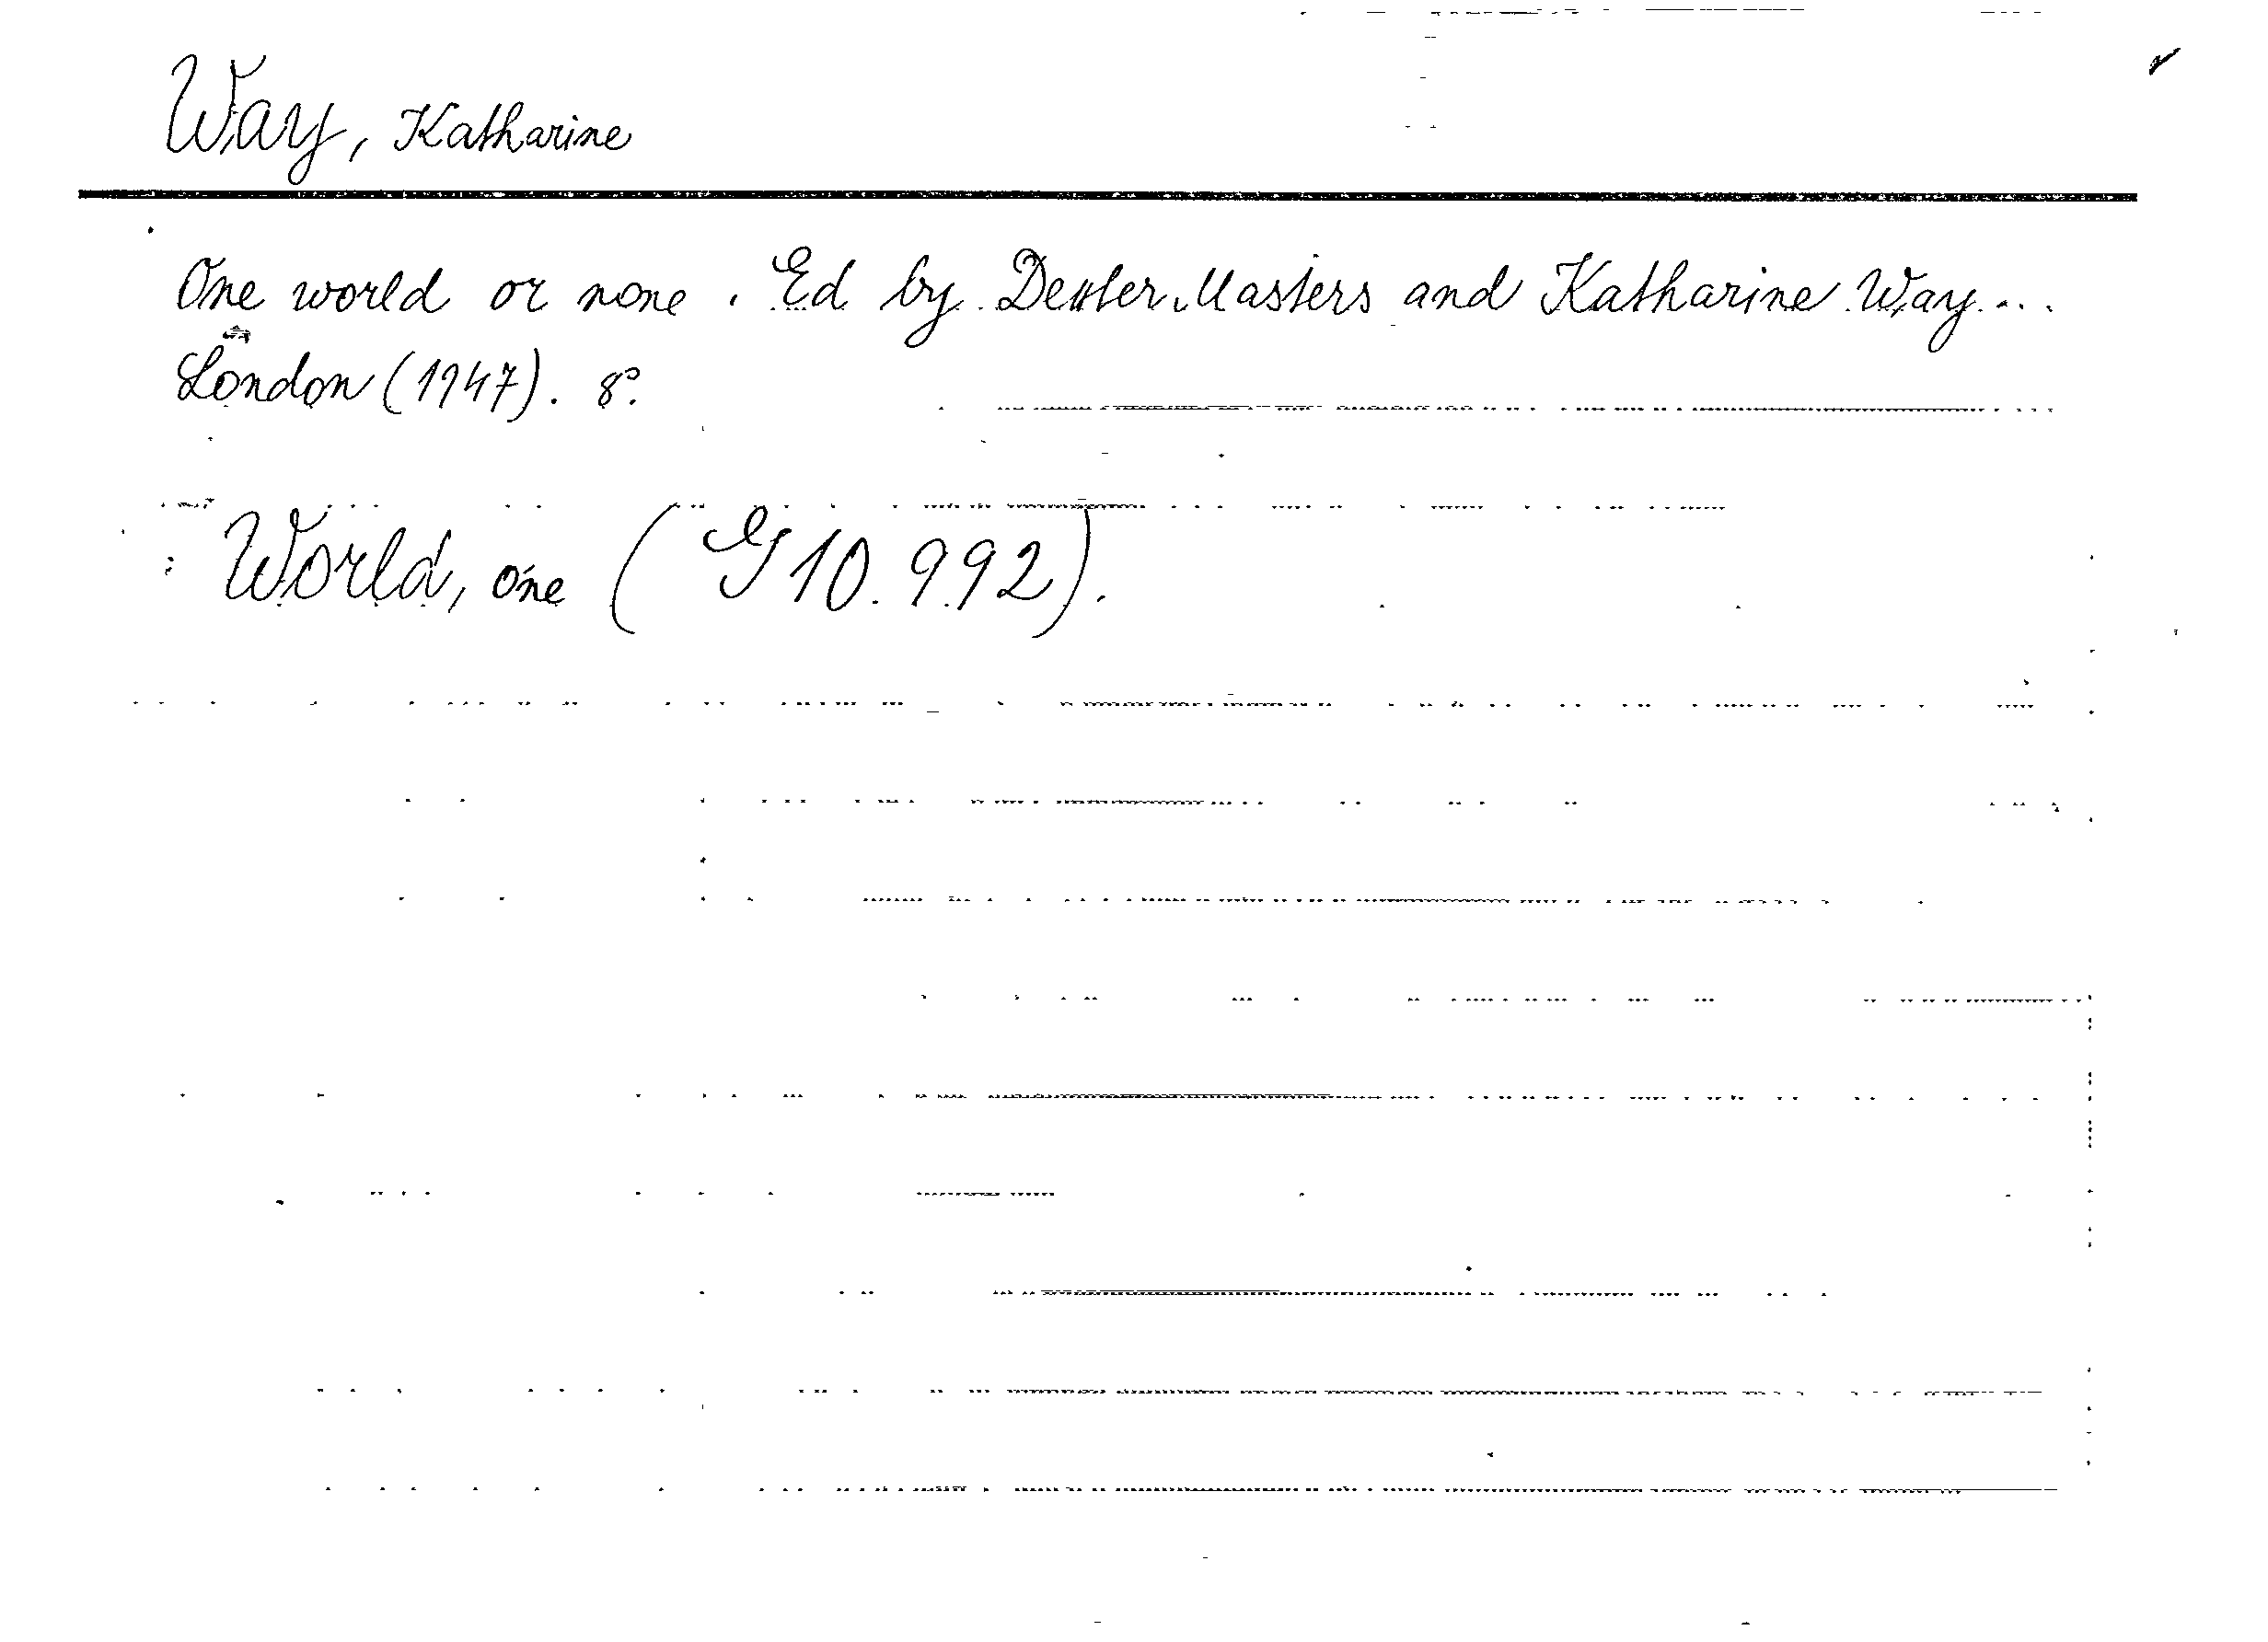 Way, Katharine
One world or none. Ed by Dexter Masters and Katharine Way...
London (1947). 8°.
World, one (G 10.992).